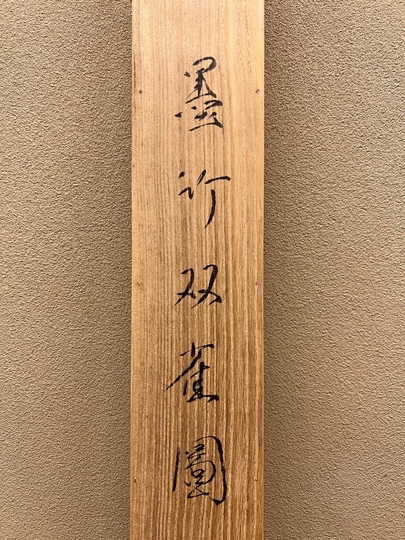 墨竹双雀圖